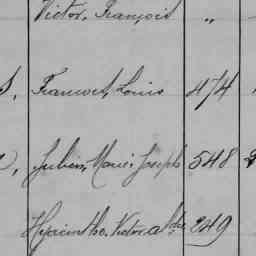 Victor, François "
S, François, Louis 474
Julien, Marie, Joseph 548
Hyacinthe, Victor, 249